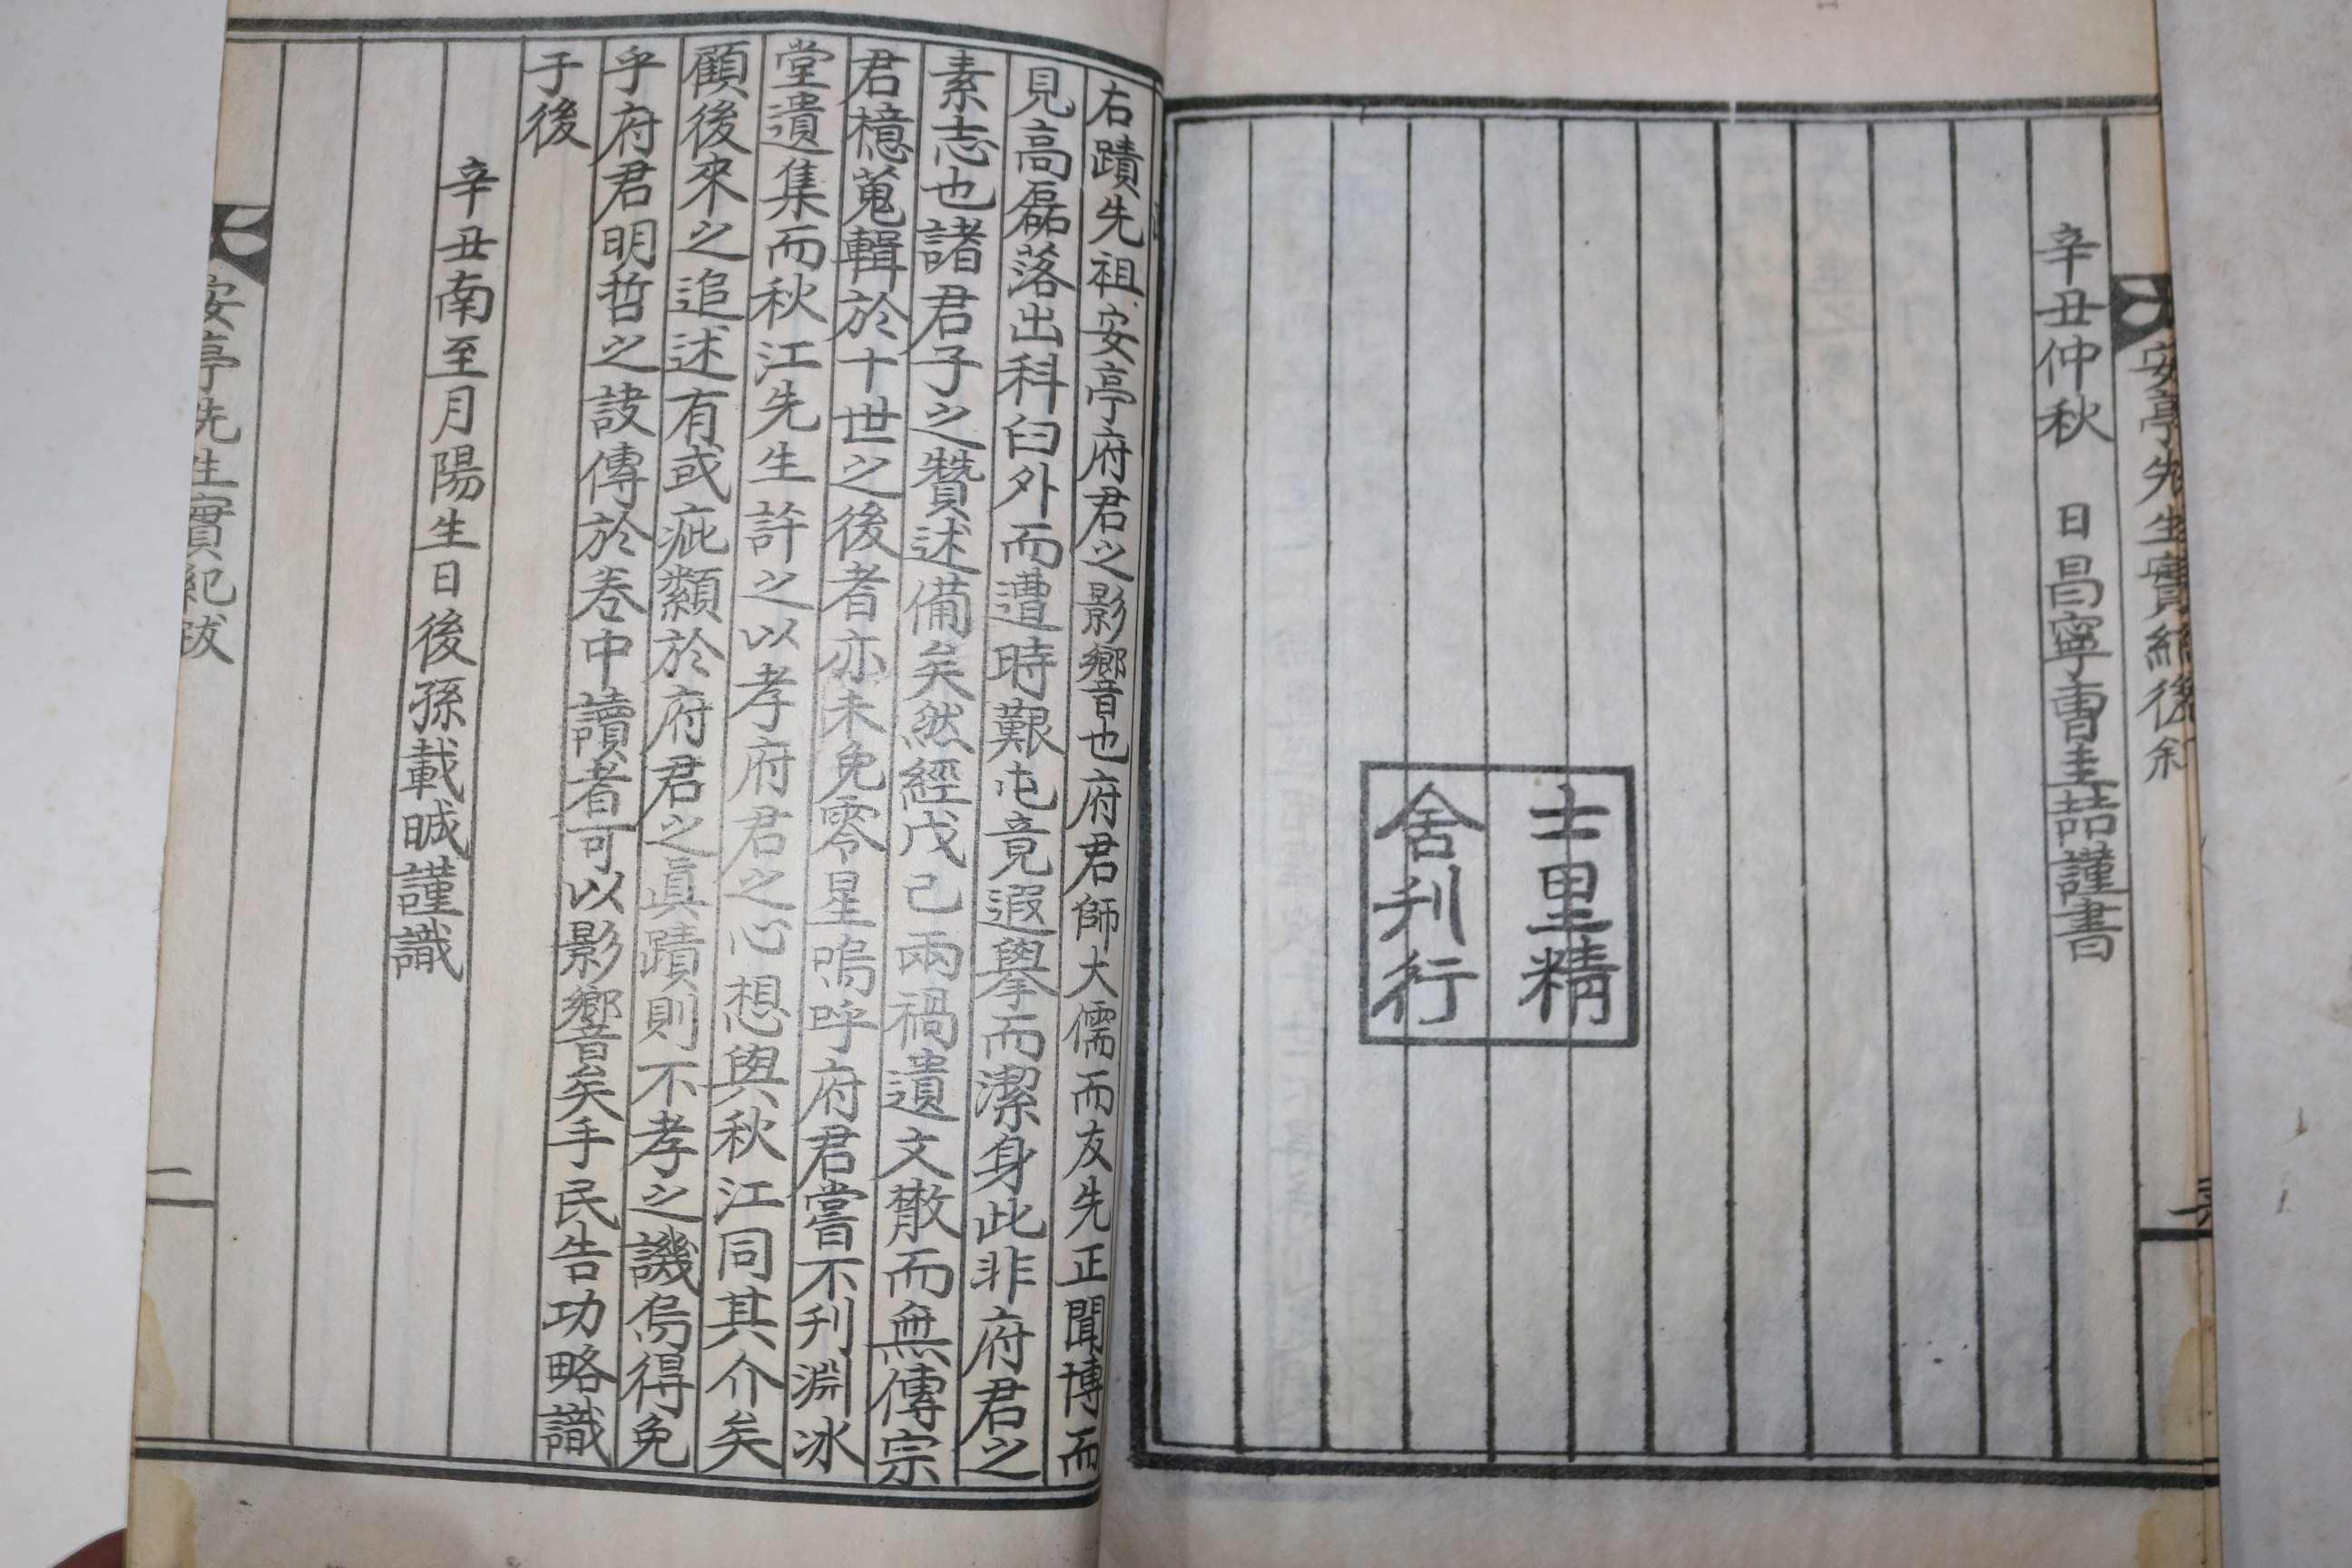 安亭先生實紀後敘
六
辛丑仲秋　日昌寧曺圭喆謹書
士里精
舍刋行
右蹟先祖安亭府君之影響也府君師大儒而友先正聞博而
見高磊落出科臼外而遭時艱屯竟遐擧而潔身此非府君之
素志也諸君子之贊述備矣然經戊己兩禍遺文散而無傳宗
君檍蒐輯於十世之後者亦未免零星嗚呼府君嘗不刋淵冰
堂遺集而秋江先生許之以孝府君之心想與秋江同其介矣
顧後來之追述有或疵纇於府君之眞蹟則不孝之譏烏得免
乎府君明哲之諉傳於卷中讀者可以影響矣手民告功略識
于後
辛丑南至月陽生日後孫載晠謹識
安亭先生實紀跋
二